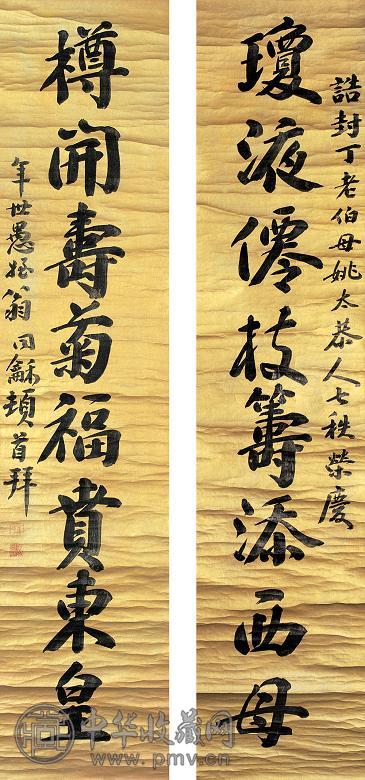 誥封丁老伯母姚太恭人七秩榮慶
瓊液僊枝籌添西母
樽開壽菊福賁東皇
年世愚姪翁同龢頓首拜
中华收藏网
www.pmv.cn